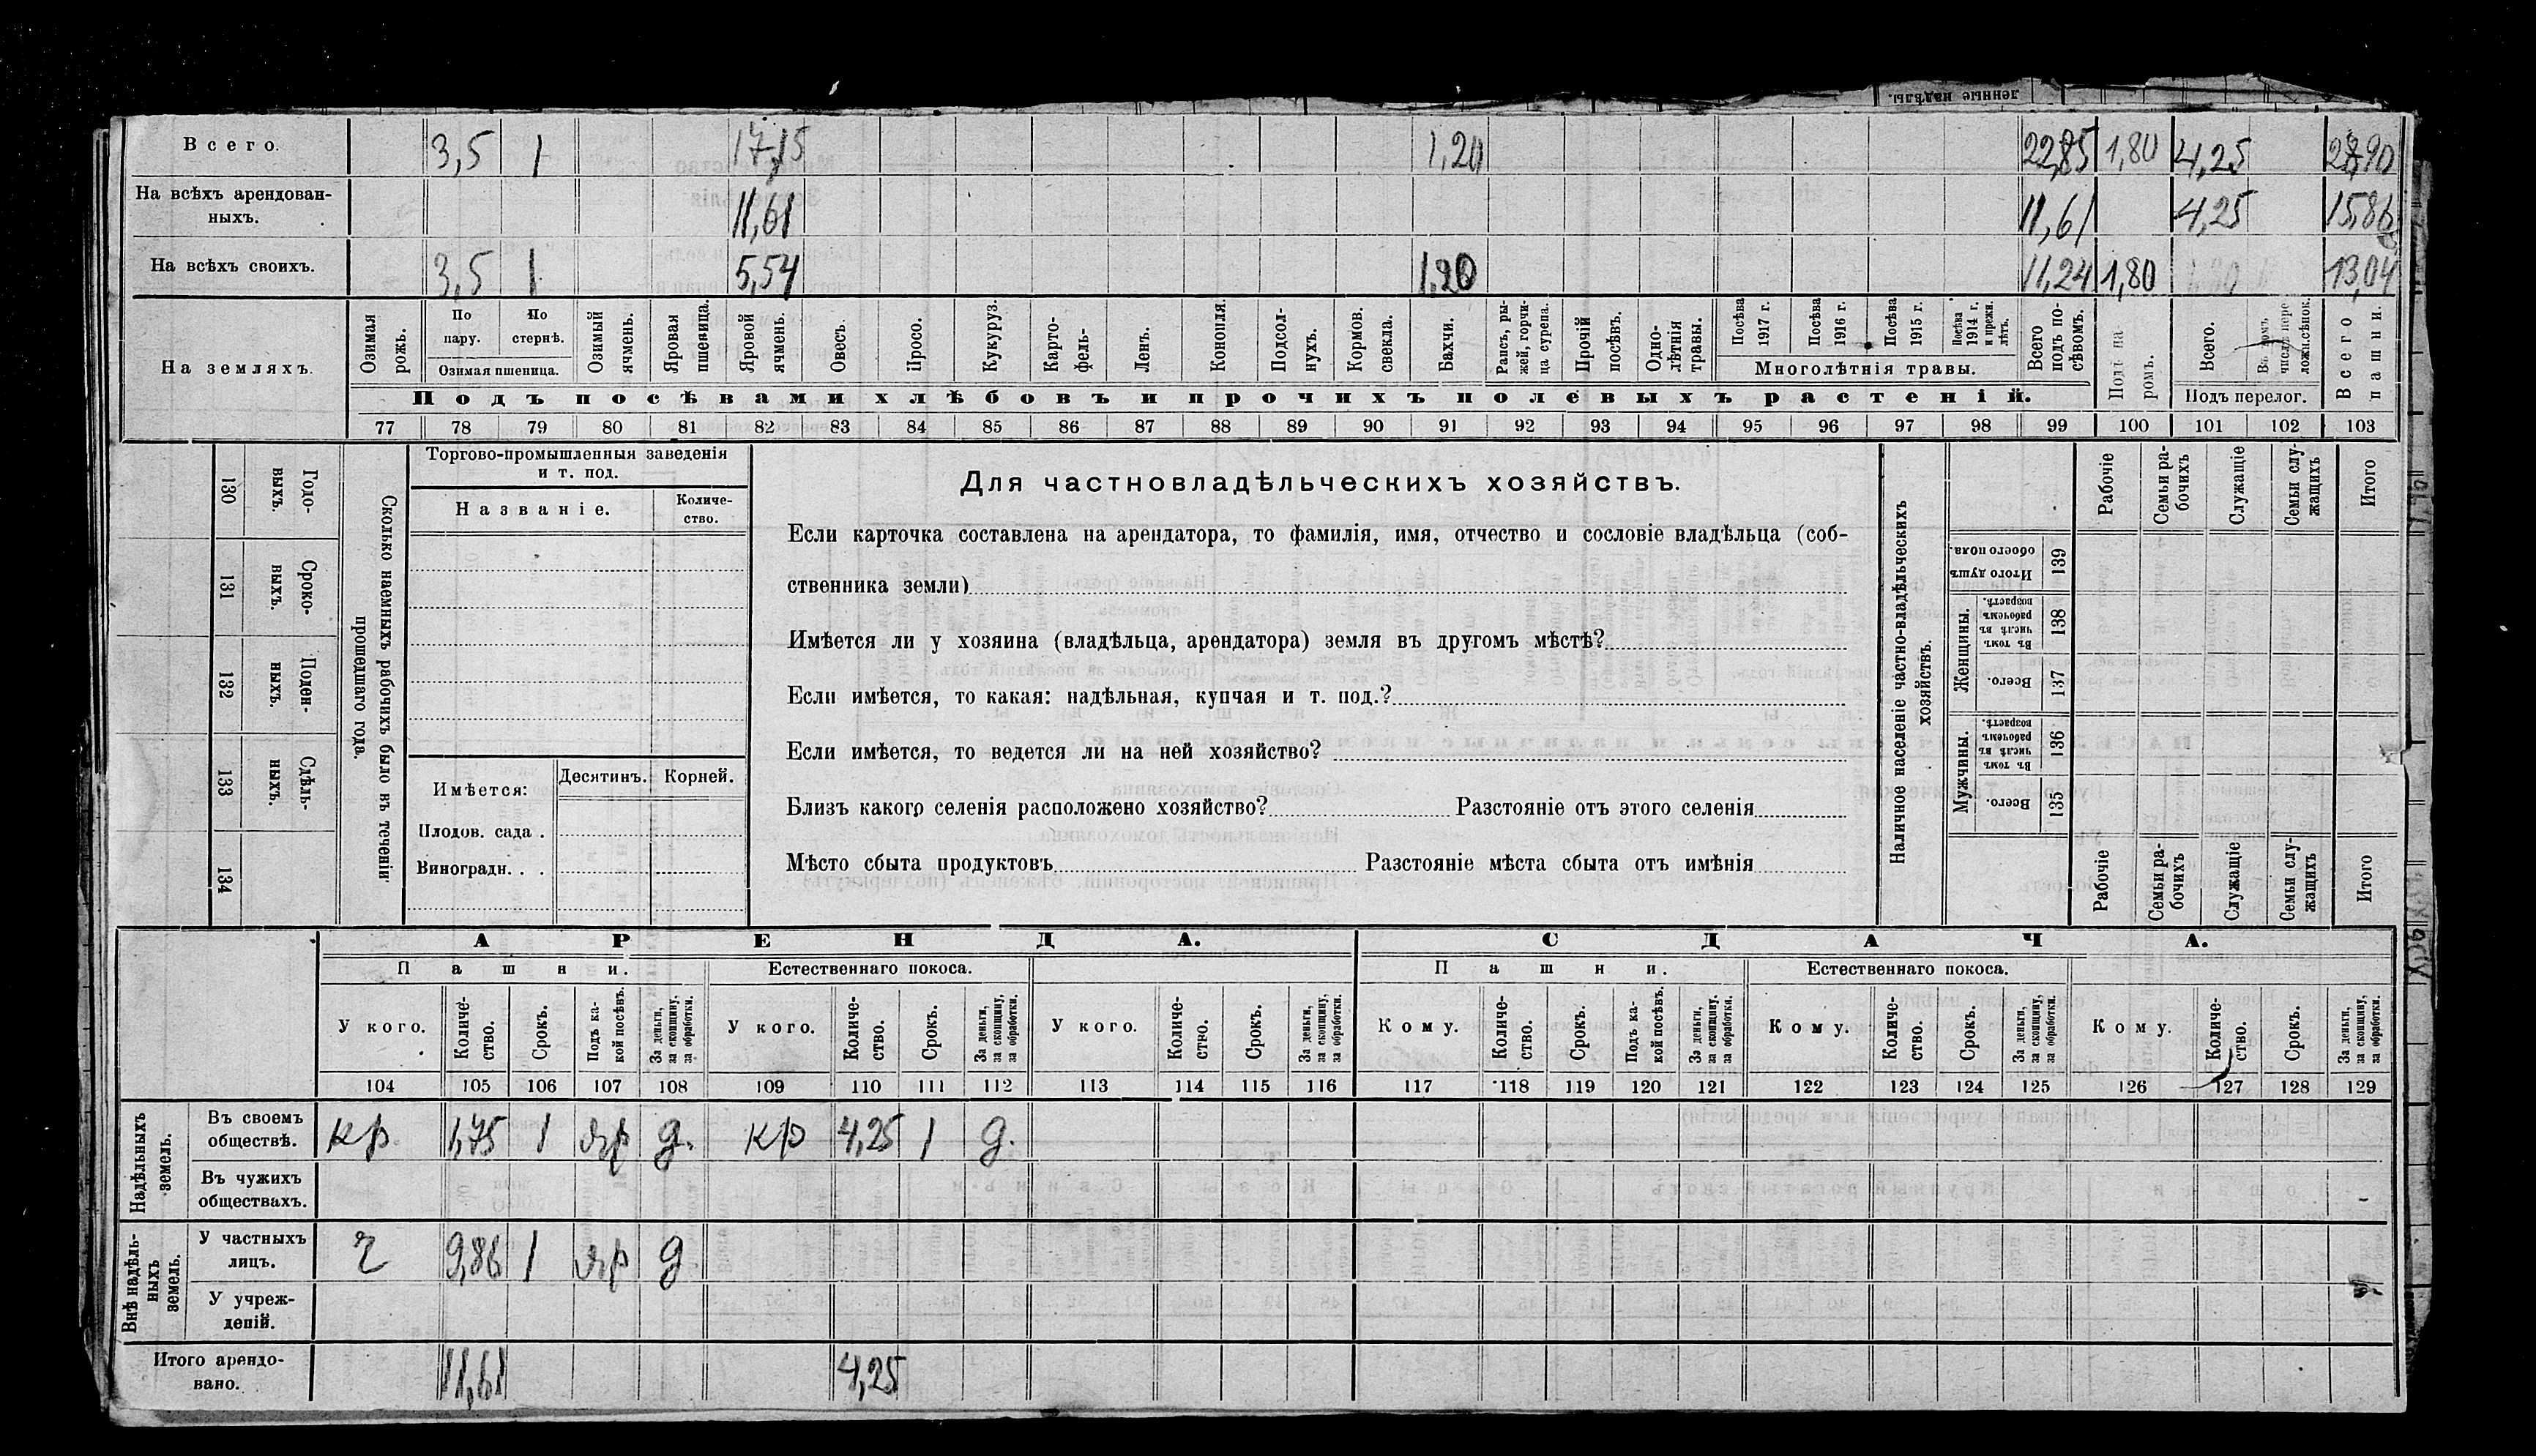 денные надѣлы.
Всего. 3,5 1 17,15 1,20 22,85 1,80 4,25 28,90
На всѣхъ арендован-
ныхъ. 11,61 11,61 4,25 15,86
На всѣхъ своихъ. 3,5 1 5,54 1,20 11,24 1,80 13,04
На земляхъ.
Озимая рожь.
По пару.
По стернѣ.
Озимая пшеница.
Озимый ячмень.
Яровая пшеница.
Яровой ячмень.
Овесъ.
Просо.
Кукуруз.
Карто-фель.
Ленъ.
Конопля.
Подсол-нухъ.
Кормов. свекла.
Бахчи.
Рапсъ, ры-жей, горчи-ца сурепа.
Прочій посѣвъ.
Одно-лѣтнія травы.
Посѣва 1917 г.
Посѣва 1916 г.
Посѣва 1915 г.
Посѣва 1914 г. и прежн. лѣтъ.
Многолѣтнія травы.
Всего подъ по-сѣвомъ.
Подъ па ромъ.
Всего.
Подъ перелог.
Всего пашни.
Подъ посѣвами хлѣбовъ и прочихъ полевыхъ растеній.
77 78 79 80 81 82 83 84 85 86 87 88 89 90 91 92 93 94 95 96 97 98 99 100 101 102 103
130 Годо-выхъ.
131 Сроко-выхъ.
132 Поден-ныхъ.
133 Сдѣль-ныхъ.
134
Сколько наемныхъ рабочихъ было въ теченіи
прошедшаго года.
Торгово-промышленныя заведенія
и т. под.
Названіе.
Количе-
ство.
Имѣется:
Десятинъ. Корней.
Плодов. сада .
Виноградн. . .
Для частновладѣльческихъ хозяйствъ.
Если карточка составлена на арендатора, то фамилія, имя, отчество и сословіе владѣльца (соб-
ственника земли)
Имѣется ли у хозяина (владѣльца, арендатора) земля въ другомъ мѣстѣ?
Если имѣется, то какая: надѣльная, купчая и т. под.?
Если имѣется, то ведется ли на ней хозяйство?
Близъ какого селенія расположено хозяйство? Разстояніе отъ этого селенія
Мѣсто сбыта продуктовъ Разстояніе мѣста сбыта отъ имѣнія
Наличное населеніе частно-владѣльческихъ
хозяйствъ.
Рабочіе
Семьи ра-бочихъ
Служащіе
Семьи слу-жащихъ
Итого
139 Итого душъ обоего пола.
Женщины.
138 Въ томъ числѣ въ рабочемъ возрастѣ.
137 Всего.
Мужчины.
136 Въ томъ числѣ въ рабочемъ возрастѣ.
135 Всего.
Рабочіе
Семьи ра-бочихъ
Служащіе
Семьи слу-жащихъ
Итого
АРЕНДА. СДАЧА.
Пашни. Естественнаго покоса. Пашни. Естественнаго покоса.
У кого.
Количе-ство.
Срокъ.
Подъ ка-кой посѣвъ.
За деньги, за скопщину, за обработки.
У кого.
Количе-ство.
Срокъ.
За деньги, за скопщину, за обработки.
У кого.
Количе-ство.
Срокъ.
За деньги, за скопщину, за обработки.
Кому.
Количе-ство.
Срокъ.
Подъ ка-кой посѣвъ.
За деньги, за скопщину, за обработки.
Кому.
Количе-ство.
Срокъ.
За деньги, за скопщину, за обработки.
Кому.
Количе-ство.
Срокъ.
За деньги, за скопщину, за обработки.
104 105 106 107 108 109 110 111 112 113 114 115 116 117 118 119 120 121 122 123 124 125 126 127 128 129
Надѣльныхъ земель.
Въ своемъ
обществѣ. кр. 1,75 1 яр д. кр 4,25 1 д.
Въ чужихъ
обществахъ.
Внѣ надѣль-ныхъ земель.
У частныхъ
лицъ. ч 9,86 1 яр д
У учреж-
деній.
Итого арендо-
вано. 11,61 4,25